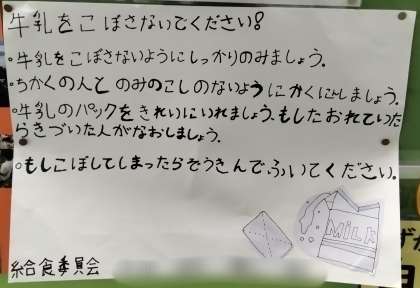 牛乳をこぼさないでください!
・牛乳をこぼさないようにしっかりのみましょう。
・ちかくの人とのみのこしのないようにかくにんしましょう。
・牛乳のパックをきれいにいれましょう。もしたおれていた
らきづいた人がなおしましょう。
・もしこぼしてしまったらぞうきんでふいてください。
MiLK
給食委員会